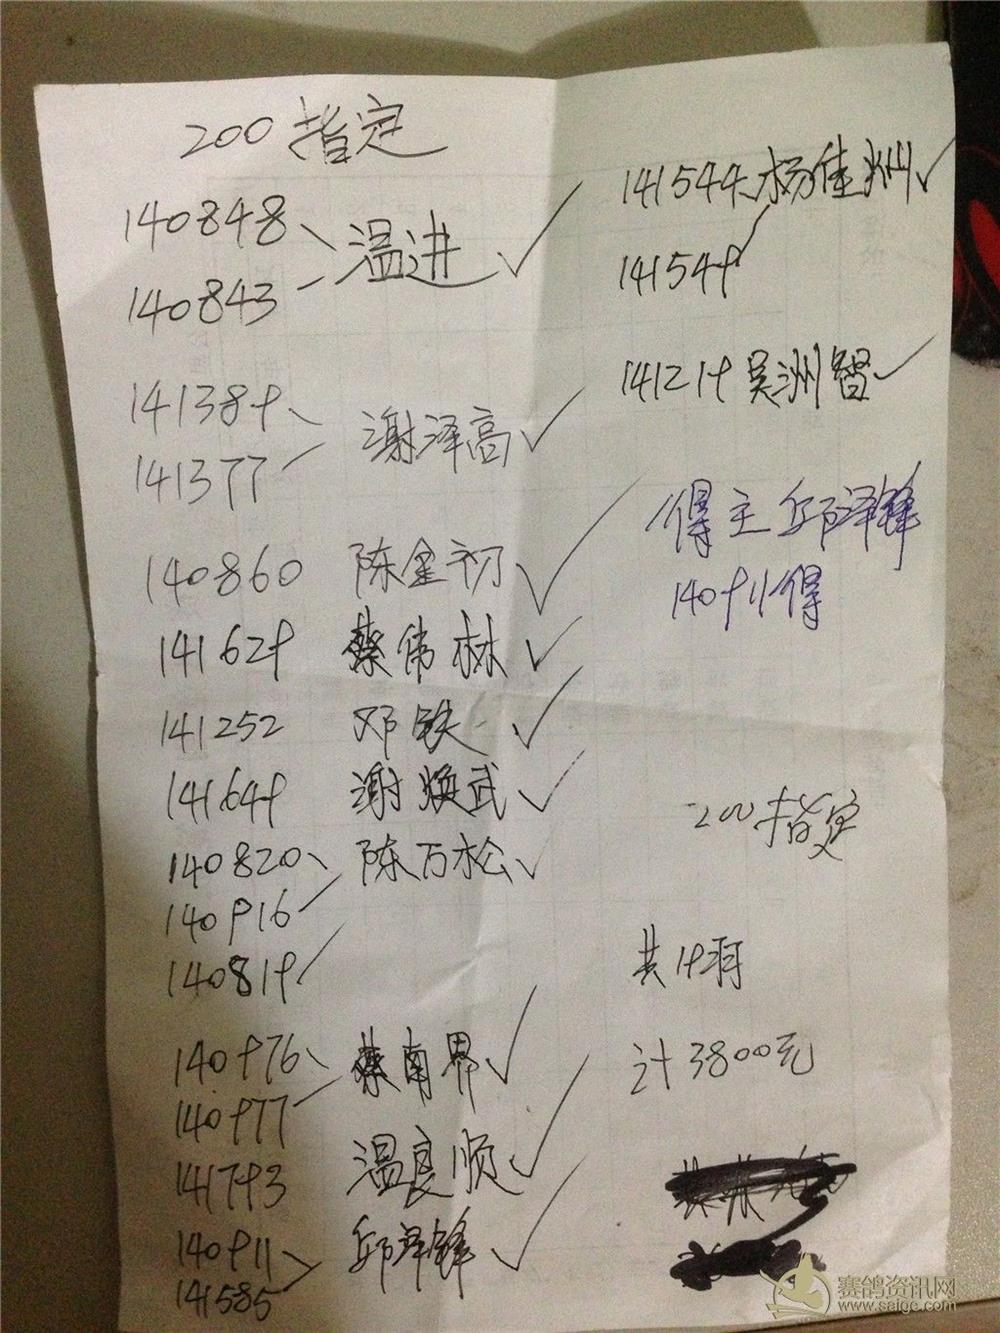 200指定
140848
温进 ✓
140843
141389
谢泽高 ✓
141377
140860 陈金初 ✓
141629 蔡伟林 ✓
141252 邓铁 ✓
141649 谢焕武 ✓
140820 陈万松 ✓
140916
140819
140976 蔡南界 ✓
140977
141793 温良顺 ✓
140911 邱泽锋 ✓
141585
141544 杨佳州 ✓
141549
141219 吴洲智 ✓
得主邱泽锋
140911得
200指定
共19羽
计3800元
赛鸽资讯网
www.saige.com